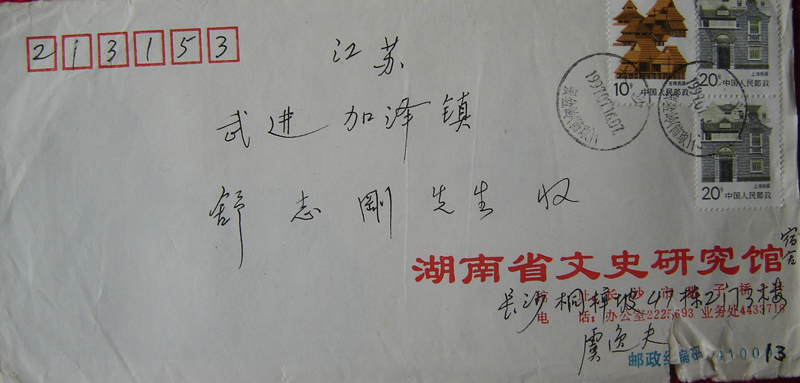 213153
江苏
武进 加泽镇
舒志刚先生 收
10分 云南民居
中国人民邮政
20分 上海民居
中国人民邮政
20分 上海民居
中国人民邮政
湖南省文史研究馆宿舍
长沙桐梓坡47栋2门3楼
电 话:办公室2225693 业务处4433710
虞逸夫
邮政编码 410013